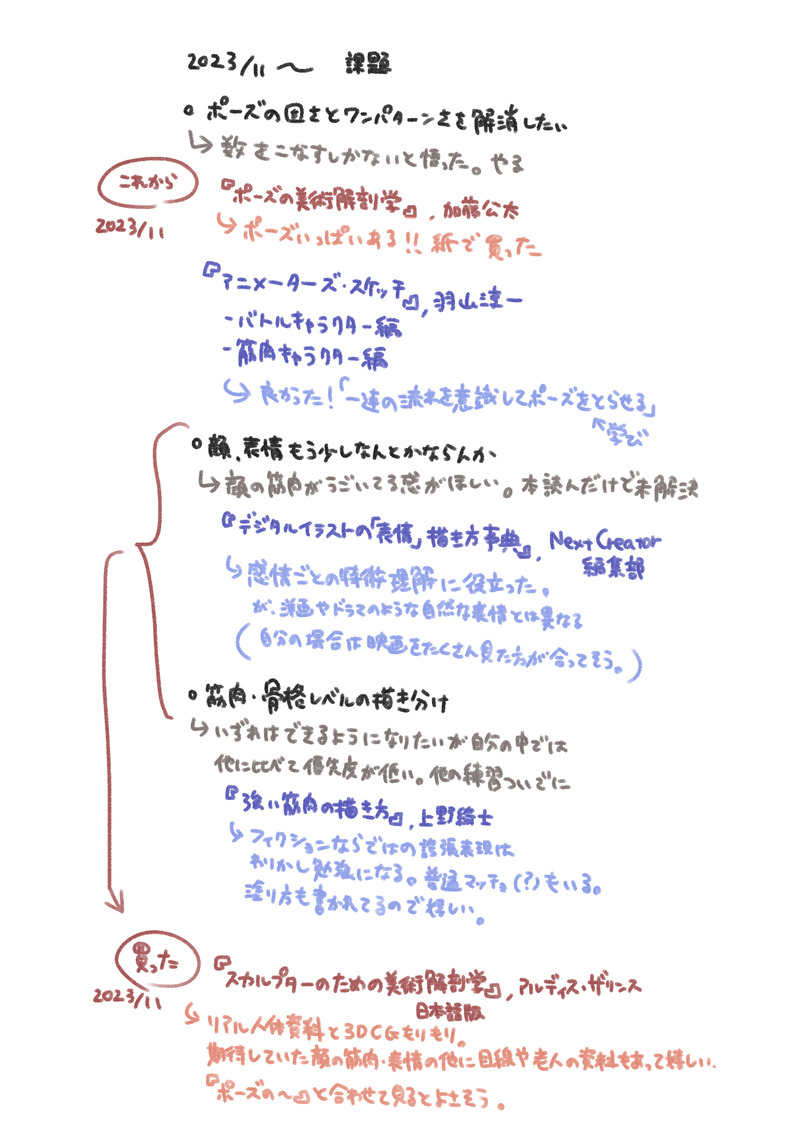 2023/11 〜 課題
○ ポーズの固さとワンパターンさを解消したい
↳ 数をこなすしかないと悟った。やる
これから
2023/11
『ポーズの美術解剖学』, 加藤公太
↳ ポーズいっぱいある!! 紙で買った
『アニメーターズ・スケッチ』, 羽山淳一
- バトルキャラクター編
- 筋肉キャラクター編
↳ 良かった!「一連の流れを意識してポーズをとらせる」
↖学び
○ 顔、表情もう少しなんとかならんか
↳ 顔の筋肉がうごいてる感がほしい。本読んだけど未解決
『デジタルイラストの「表情」描き方事典』, NextCreator
編集部
↳ 感情ごとの特徴理解に役立った。
が、洋画やドラマのような自然な表情とは異なる
(自分の場合は映画をたくさん見た方が合ってそう。)
○ 筋肉・骨格レベルの描き分け
↳ いずれはできるようになりたいが自分の中では
他に比べて優先度が低い。他の練習ついでに
『強い筋肉の描き方』, 上野綺士
↳ フィクションならではの誇張表現は
わりかし勉強になる。普通マッチョ(?)もいる。
塗り方も書かれてるので嬉しい。
買った
2023/11
『スカルプターのための美術解剖学』, アルディス・ザリンス
日本語版
↳ リアル人体資料と3DCGもりもり。
期待していた顔の筋肉・表情の他に目線や老人の資料もあって嬉しい.
『ポーズの〜』と合わせて見るとよさそう。